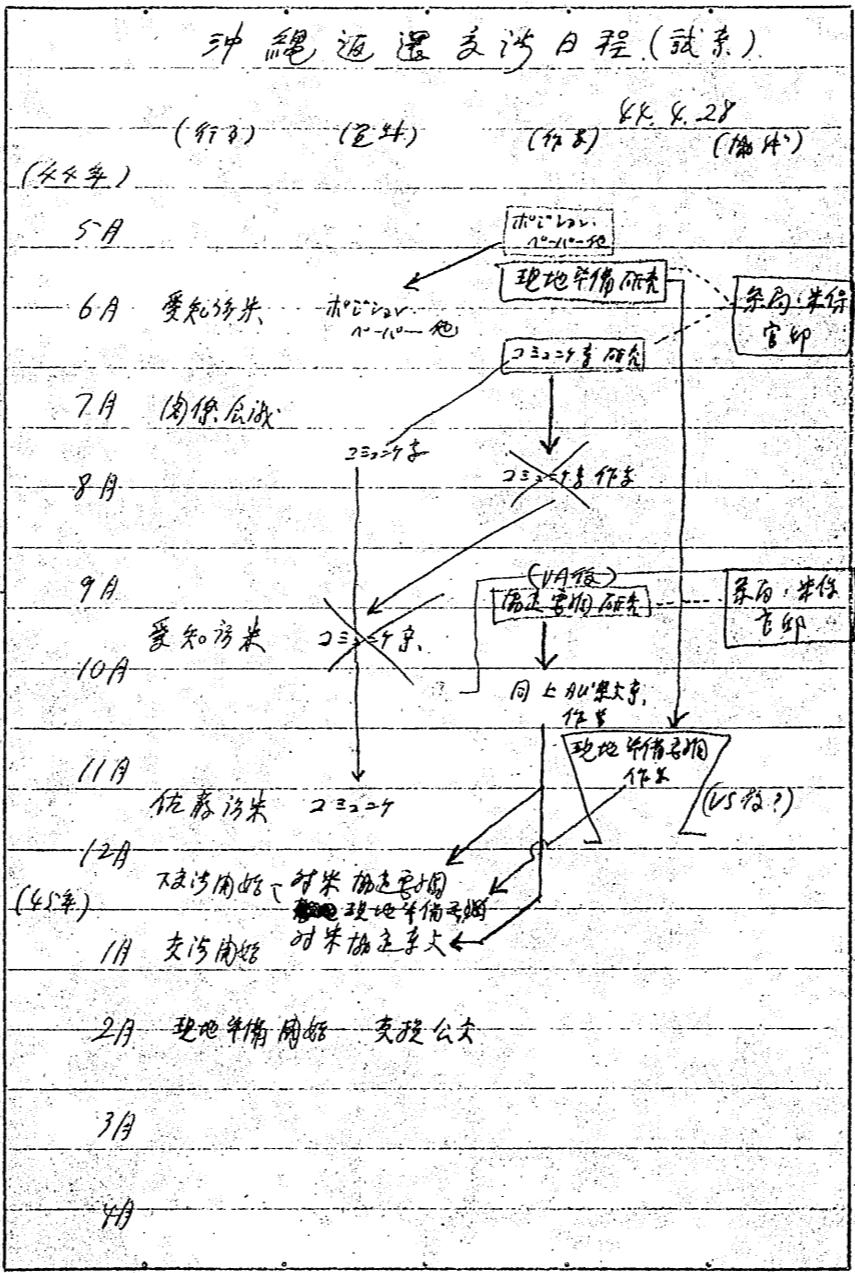 沖縄返還交渉日程(試案)
44.4.28
(行事) (作業)
(44年)
5月
ポジション・
ペーパー他
現地準備研究
6月 愛知訪米 ポジション・
ペーパー他
条局・米保
官邸
コミュニケ案研究
7月 閣僚会議
コミュニケ案
8月 コミュニケ案作業
9月
協定要綱研究
条局・米保
官邸
愛知訪米 コミュニケ案
10月
同上及び案文案
作業
11月
現地準備要綱
作業
佐藤訪米 コミュニケ
(US後?)
12月
対米協定要綱
現地準備要綱
(45年)
1月 交渉開始 対米協定案文
2月 現地準備開始 交換公文
3月
4月